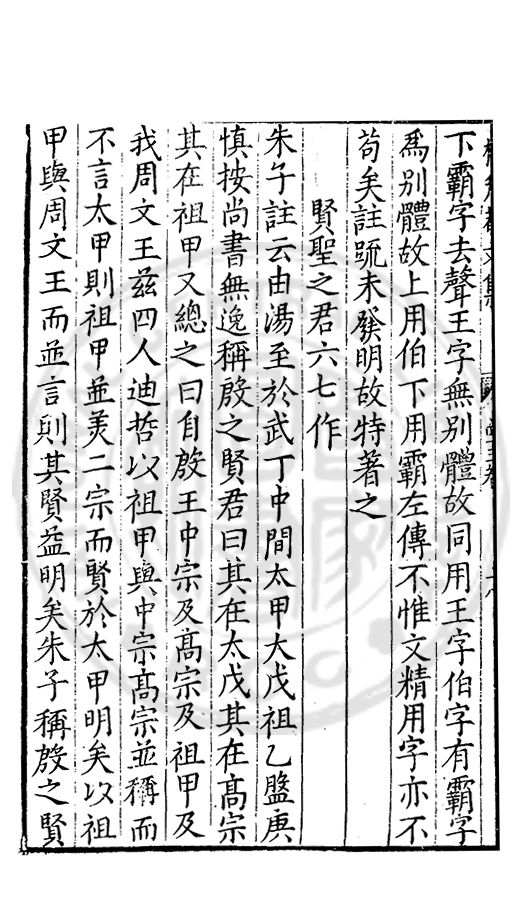 下霸字去聲王字無别體故同用王字伯字有霸字
爲别體故上用伯下用霸左傳不惟文精用字亦不
苟矣註䟽未發明故特著之
賢聖之君六七作
朱子註云由湯至於武丁中間太甲大戊祖乙盤庚
慎按尚書無逸稱殷之賢君曰其在太戊其在高宗
其在祖甲又總之曰自殷王中宗及高宗及祖甲及
我周文王兹四人迪哲以祖甲與中宗高宗並稱而
不言太甲則祖甲並羙二宗而賢於太甲明矣以祖
甲與周文王而並言則其賢益明矣朱子稱殷之賢